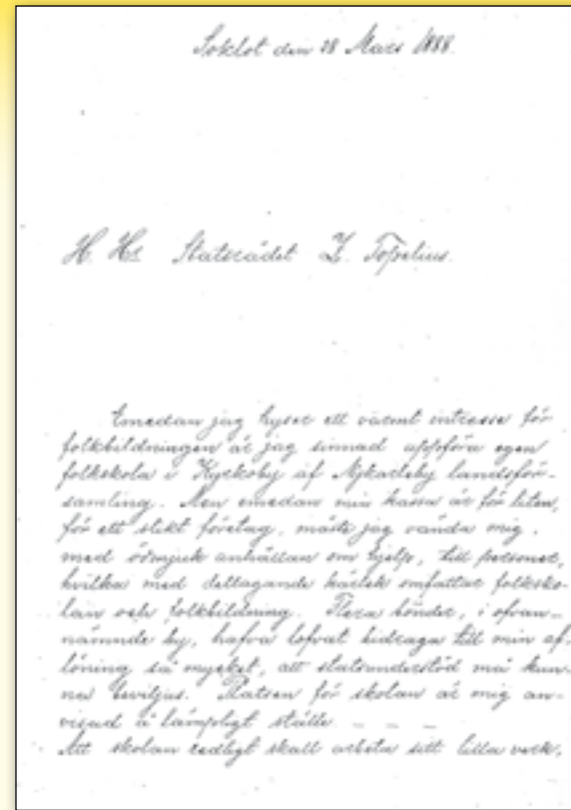 Soklot den 28 Mars 1888.
H. Hr Statsrådet Z. Topelius.
Emedan jag hyser ett varmt intresse för
folkbildningen är jag sinnad uppföra egen
folkskola i Kyrkoby af Nykarleby landsför-
samling. Men emedan min kassa är för liten,
för ett slikt företag, måste jag vända mig,
med ödmjuk anhållan om hjelp, till personer,
hvilka med deltagande kärlek omfattar folksko-
lan och folkbildning. Flera bönder, i ofvan-
nämnde by, hafva lofvat bidraga till min af-
löning så mycket, att statsunderstöd må kun-
na beviljas. Platsen för skolan är mig an-
visad å lämpligt ställe _ _ _
Att skolan redligt skall arbeta sitt lilla verk,